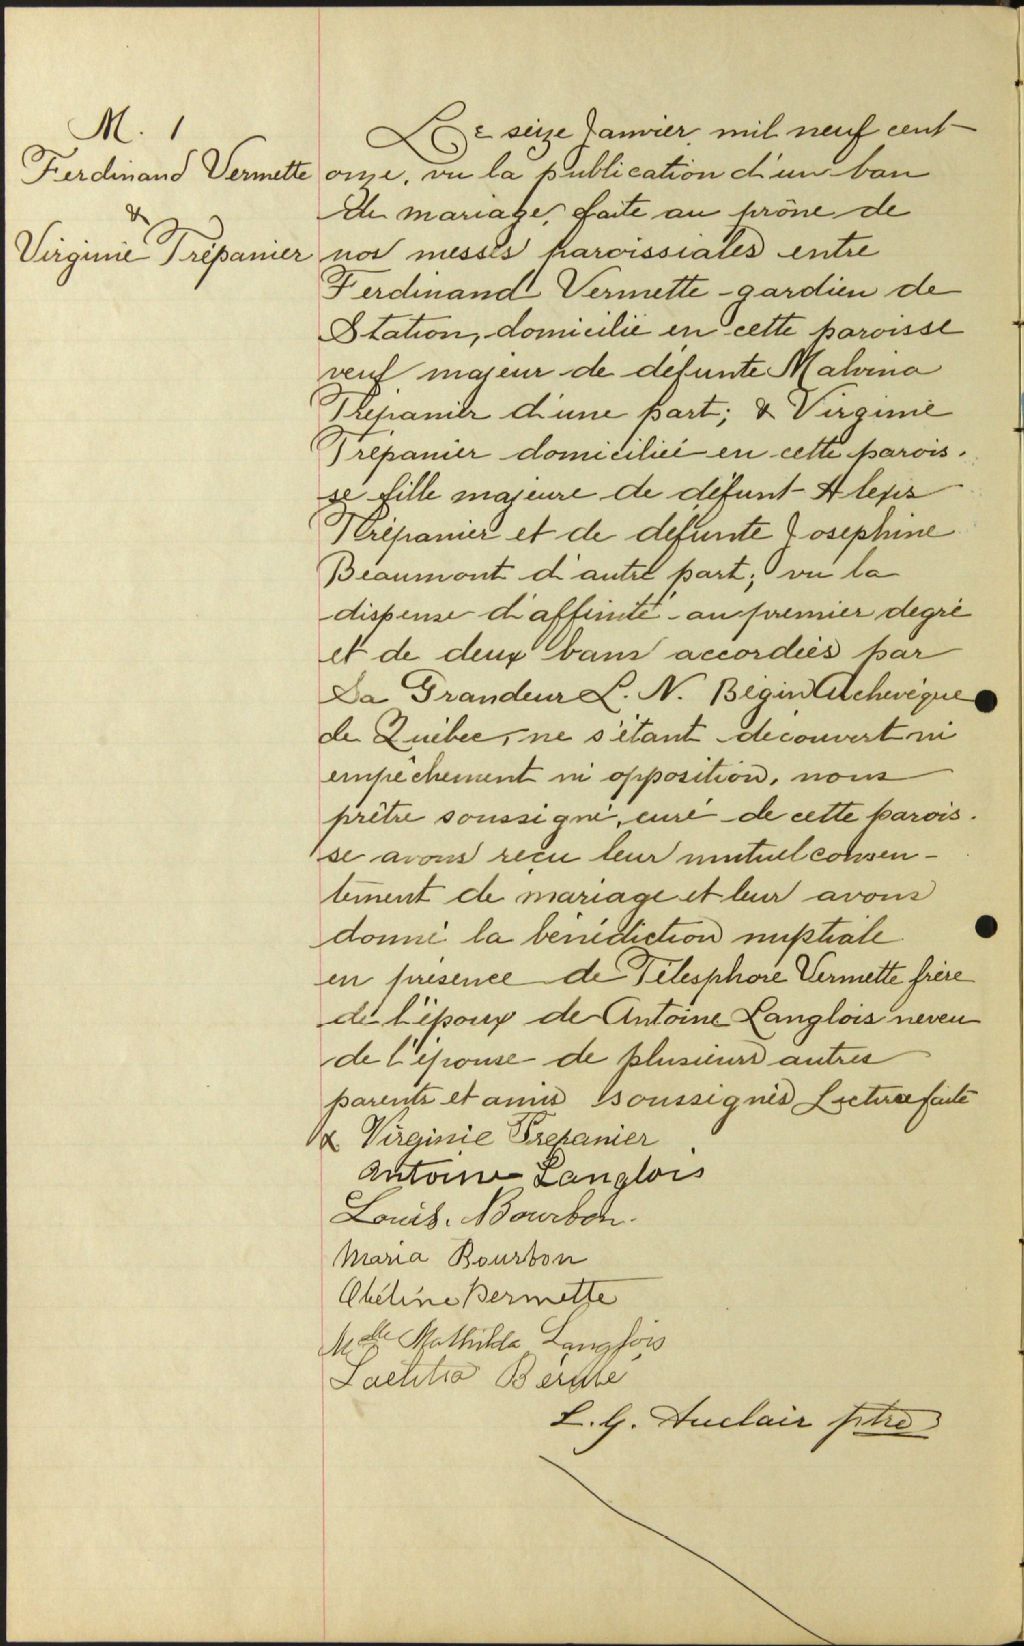 M. 1
Ferdinand Vermette
&
Virginie Trépanier
Le seize Janvier mil neuf cent
onze, vu la publication d'un ban
de mariage, faite au prône de
nos messes paroissiales entre
Ferdinand Vermette gardien de
Station, domicilié en cette paroisse
veuf majeur de défunte Malvina
Trépanier d'une part; & Virginie
Trépanier domiciliée en cette parois-
se fille majeure de défunt Alexis
Trépanier et de défunte Josephine
Beaumont d'autre part; vu la
dispense d'affinité au premier degré
et de deux bans accordées par
Sa Grandeur L. N. Bégin Archevêque
de Québec, ne s'étant découvert ni
empêchement ni opposition, nous
prêtre soussigné, curé de cette parois-
se avons reçu leur mutuel consen-
tement de mariage et leur avons
donné la bénédiction nuptiale
en présence de Télesphore Vermette frère
de l'époux de Antoine Langlois neveu
de l'épouse de plusieurs autres
parents et amis soussignés Lecture faite
x Virginie Trepanier
Antoine Langlois
Louis. Bourbon.
Maria Bourbon
Obéline Vermette
Mlle Mathilda Langlois
Laetitia Bérubé
L. G. Auclair ptre